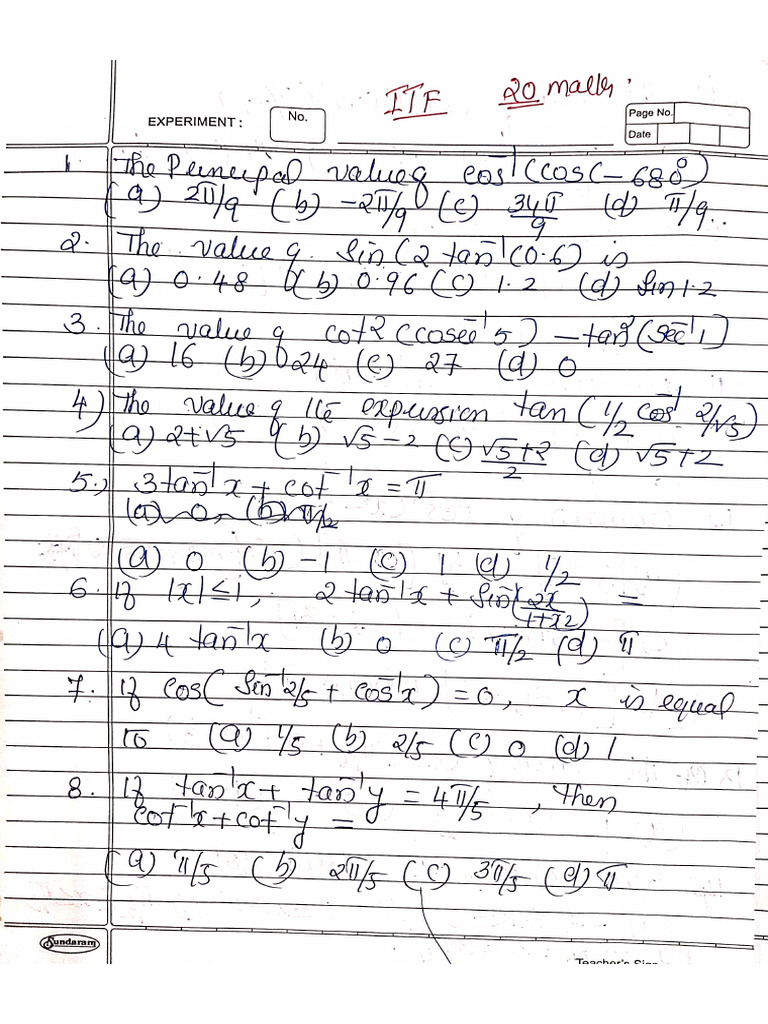 ITF 20 marks.
EXPERIMENT : No. Page No.
Date
1. The Principal value of cos⁻¹(cos(-680°)
(a) 2π/9 (b) -2π/9 (c) 34π/9 (d) π/9.
2. The value of sin(2 tan⁻¹(0.6) is
(a) 0.48 (b) 0.96 (c) 1.2 (d) sin 1.2
3. The value of cot²(cosec⁻¹5) - tan²(sec⁻¹1)
(a) 16 (b) 24 (c) 27 (d) 0
4) The value of the expression tan(1/2 cos⁻¹ 2/√5)
(a) 2+√5 (b) √5-2 (c) √5+2/2 (d) √5+2
5., 3tan⁻¹x + cot⁻¹x = π
(a) 0, (b) π/2
(a) 0 (b) -1 (c) 1 (d) 1/2
6. If |x| ≤ 1, 2 tan⁻¹x + sin⁻¹(2x/1+x2) =
(a) 4 tan⁻¹x (b) 0 (c) π/2 (d) π
7. If cos(sin⁻¹2/5 + cos⁻¹x) = 0, x is equal
to (a) 1/5 (b) 2/5 (c) 0 (d) 1.
8. If tan⁻¹x + tan⁻¹y = 4π/5, then
cot⁻¹x + cot⁻¹y =
(a) π/5 (b) 2π/5 (c) 3π/5 (d) π
Sundaram
Teacher's